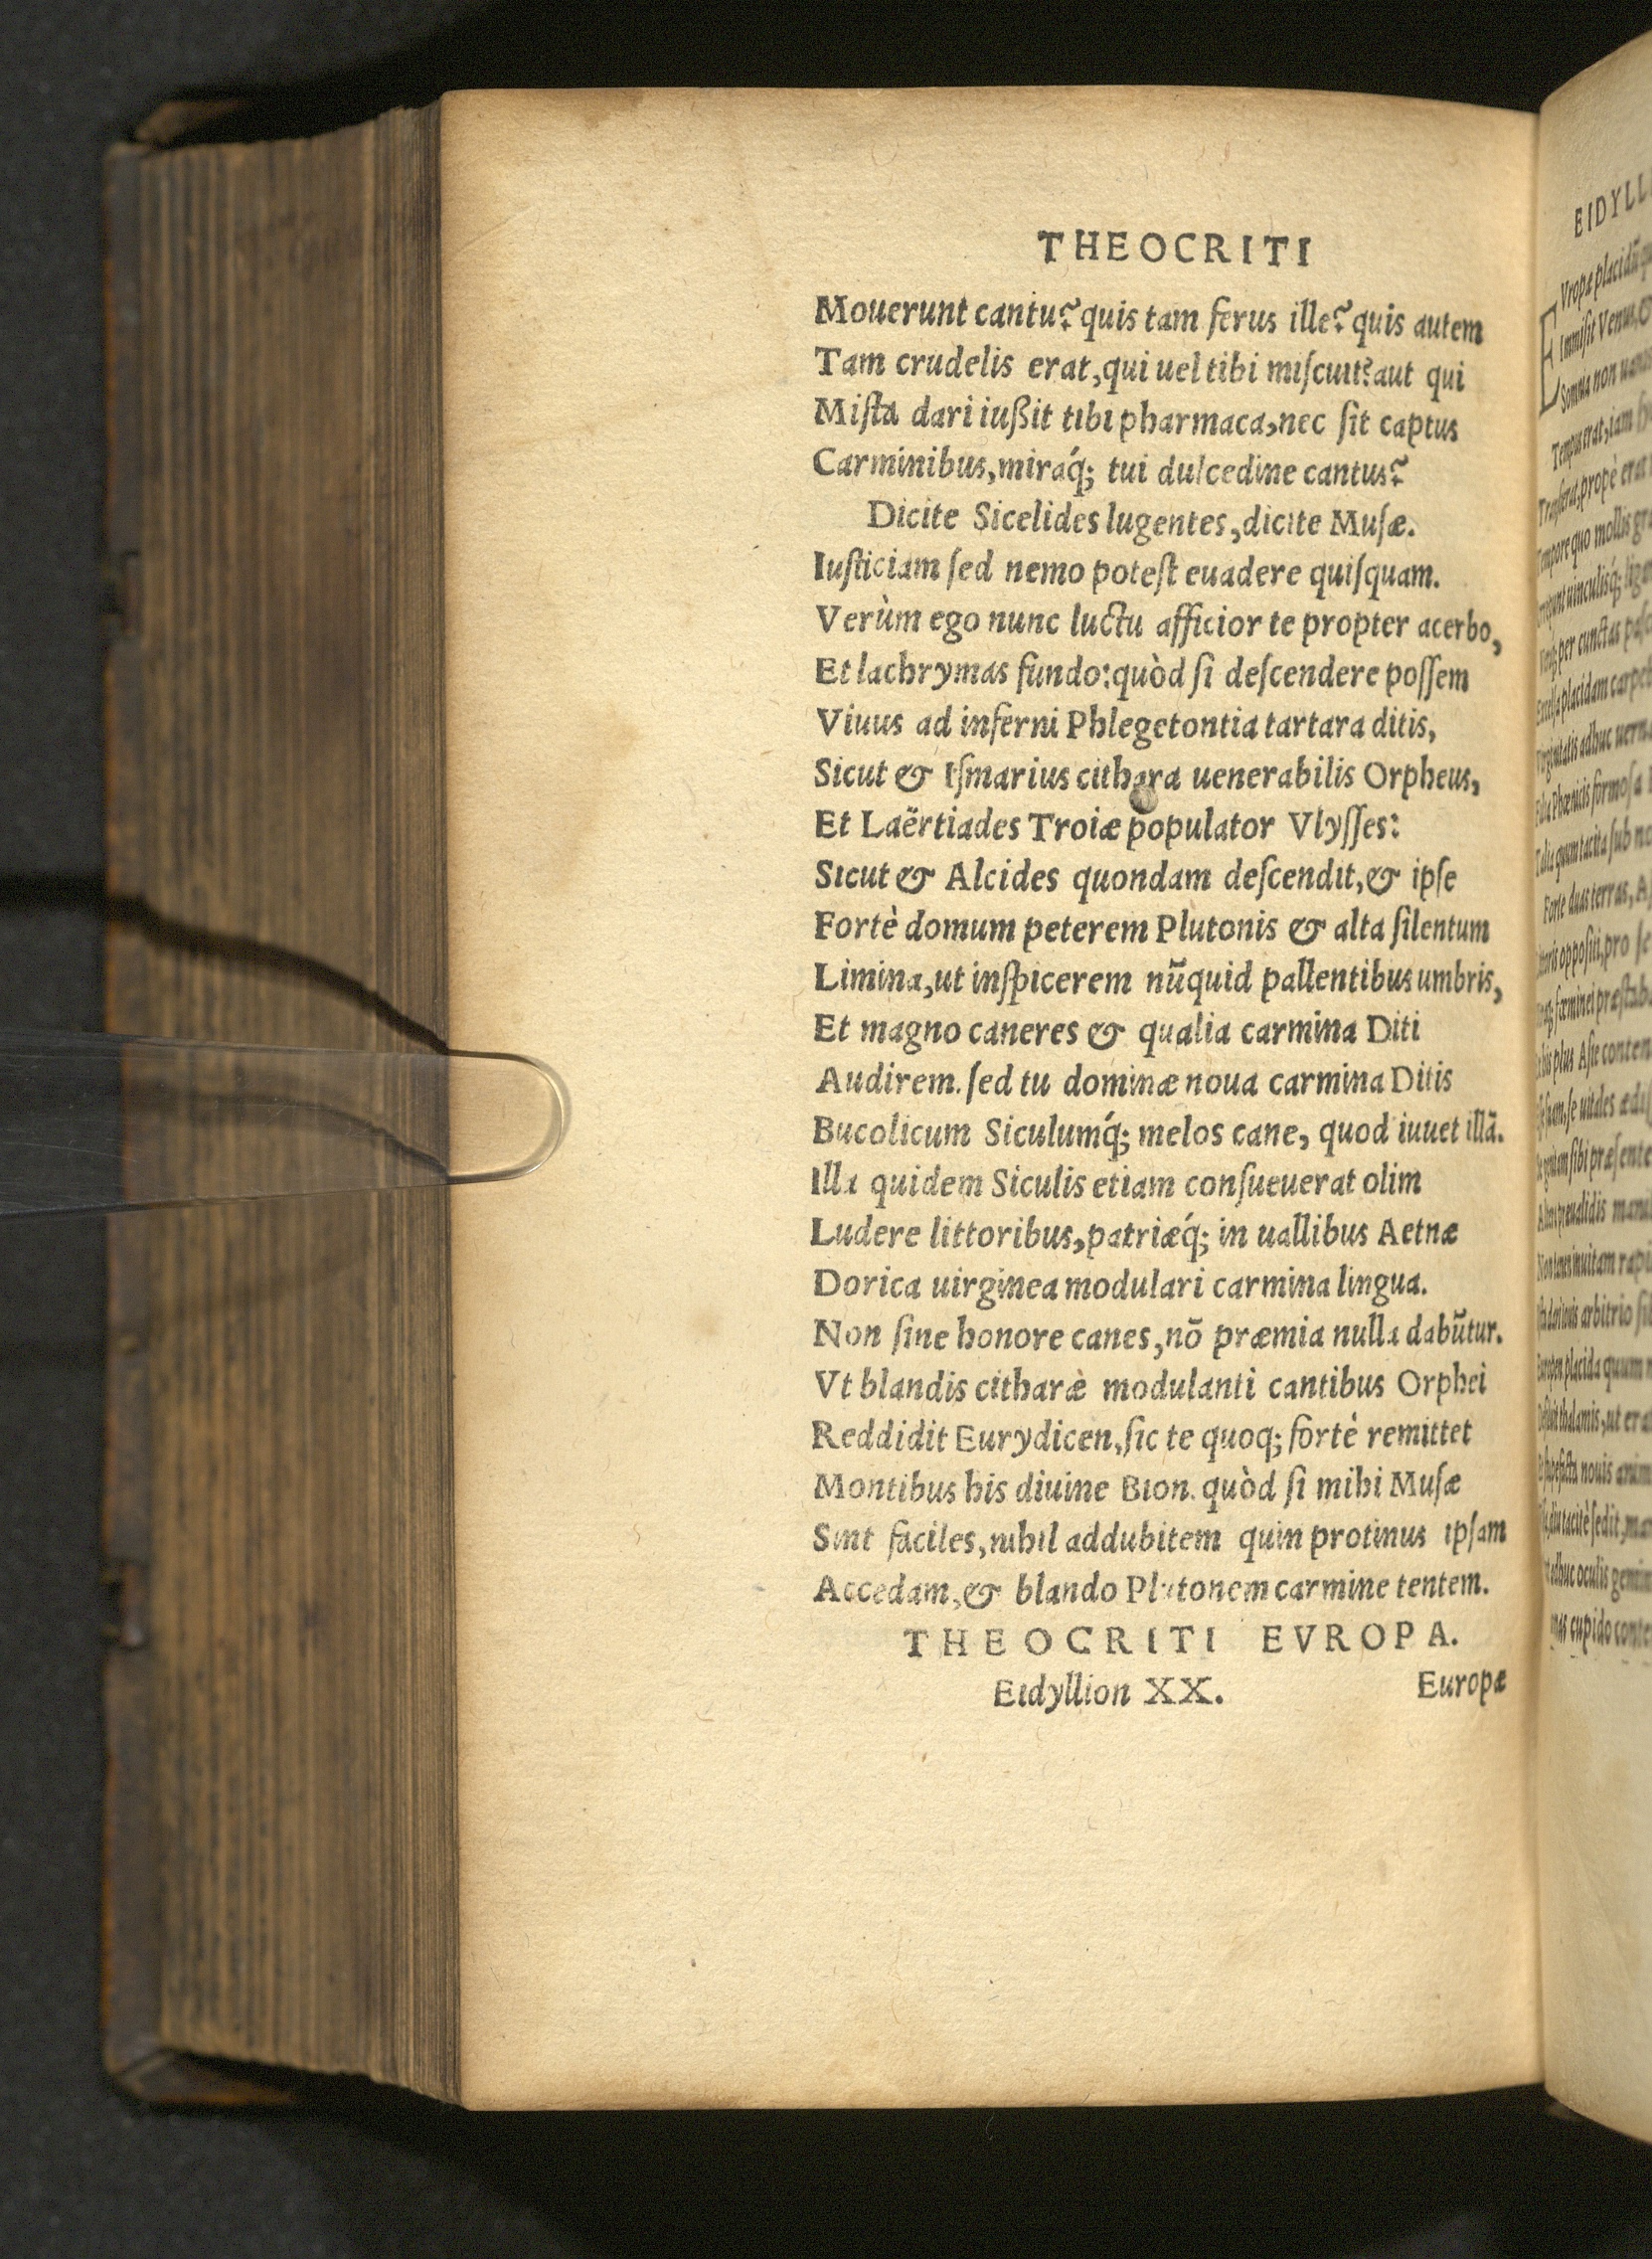 THEOCRITI
Mouerunt cantu? quis tam ferus ille? quis autem
Tam crudelis erat, qui uel tibi miſcuit? aut qui
Miſta dari iußit tibi pharmaca, nec ſit captus
Carminibus, miraq́; tui dulcedine cantus?
Dicite Sicelides lugentes, dicite Muſæ.
Iuſticiam ſed nemo poteſt euadere quiſquam.
Verùm ego nunc luctu afficior te propter acerbo,
Et lachrymas fundo: quòd ſi deſcendere poſſem
Viuus ad inferni Phlegetontia tartara ditis,
Sicut & Iſmarius cithara uenerabilis Orpheus,
Et Laërtiades Troiæ populator Vlyſſes:
Sicut & Alcides quondam deſcendit, & ipſe
Fortè domum peterem Plutonis & alta ſilentum
Limina, ut inſpicerem nũquid pallentibus umbris,
Et magno caneres & qualia carmina Diti
Audirem. ſed tu dominæ noua carmina Ditis
Bucolicum Siculumq́; melos cane, quod iuuet illā.
Illa quidem Siculis etiam conſueuerat olim
Ludere littoribus, patriæq́; in uallibus Aetnæ
Dorica uirginea modulari carmina lingua.
Non ſine honore canes, nō præmia nulla dabūtur.
Vt blandis citharæ̀ modulanti cantibus Orphei
Reddidit Eurydicen, ſic te quoq; fortè remittet
Montibus his diuine Bion. quòd ſi mihi Muſæ
Sint faciles, nihil addubitem quin protinus ipſam
Accedam, & blando Plutonem carmine tentem.
THEOCRITI EVROPA.
Eidyllion XX.
Europæ
EIDYLL
Vropæ placidū
Immiſit Venus, &
Somnia non
Tempus erat, iam
prope erat
Tempore quo mollis
uinculisq́;
per cunctas
placidam
adhuc
formoſa
tacita ſub
Forte duas terras, A
oppoſiti, pro ſe
fœminei
plus Aſie
ſibi præſente
inuitam
arbitrio
placida quam
thalamis, ut
nouis
tacitè ſedit,
adhuc oculis
cupido